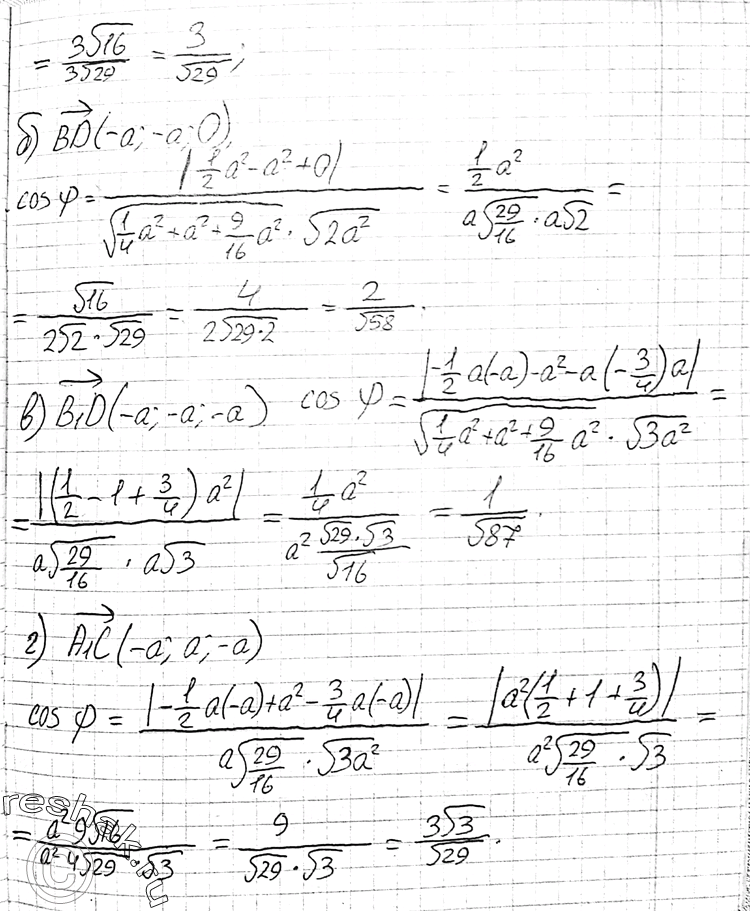 = 3√16 / 3√29 = 3 / √29;
б) BD⃗ (-a; -a; 0),
cos φ = |1/2 a² - a² + 0| / (√(1/4 a² + a² + 9/16 a²) · √(2a²)) = 1/2 a² / (a√(29/16) · a√2) =
= √16 / (2√2 · √29) = 4 / (2√(29·2)) = 2 / √58.
в) B₁D⃗ (-a; -a; -a) cos φ = |-1/2 a(-a) - a² - a(-3/4)a| / (√(1/4 a² + a² + 9/16 a²) · √(3a²)) =
= |(1/2 - 1 + 3/4) a²| / (a√(29/16) · a√3) = 1/4 a² / (a² (√29 · √3)/√16) = 1 / √87.
г) A₁C⃗ (-a; a; -a)
cos φ = |-1/2 a(-a) + a² - 3/4 a(-a)| / (a√(29/16) · √(3a²)) = |a²(1/2 + 1 + 3/4)| / (a²√(29/16) · √3) =
= a² 9√16 / (a² 4√29 · √3) = 9 / (√29 · √3) = 3√3 / √29.
reshak.ru